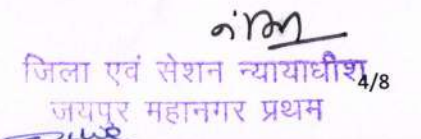 जिला एवं सेशन न्यायाधीश
4/8
जयपुर महानगर प्रथम